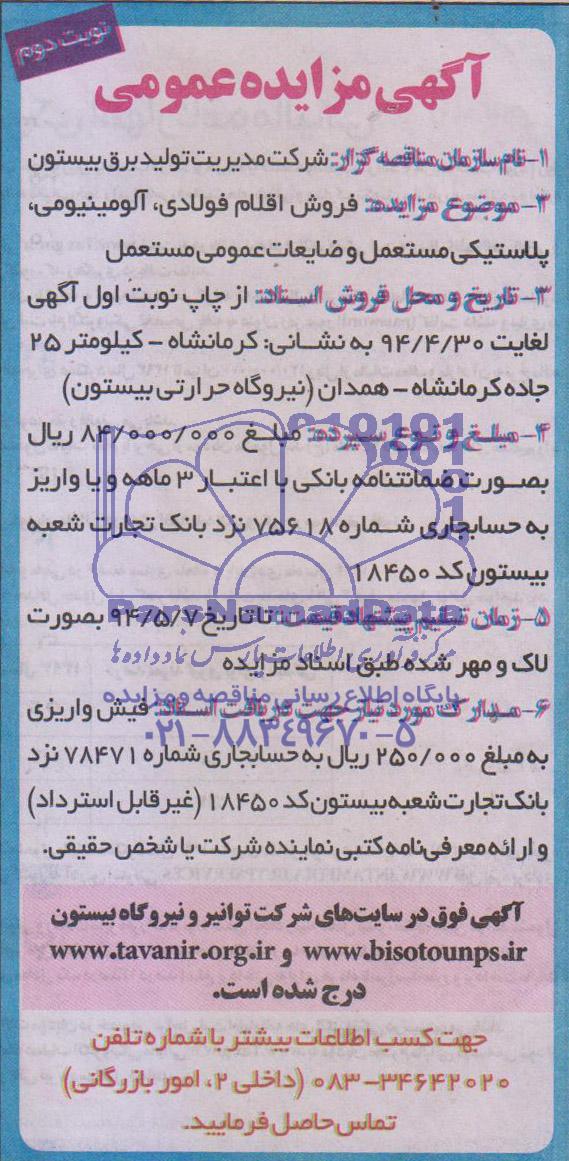 نوبت دوم
آگهی مزایده عمومی
۱- نام سازمان مناقصه گزار: شرکت مدیریت تولید برق بیستون
۲- موضوع مزایده: فروش اقلام فولادی، آلومینیومی،
پلاستیکی مستعمل و ضایعات عمومی مستعمل
۳- تاریخ و محل فروش اسناد: از چاپ نوبت اول آگهی
لغایت ۹۴/۴/۳۰ به نشانی: کرمانشاه - کیلومتر ۲۵
جاده کرمانشاه - همدان (نیروگاه حرارتی بیستون)
۴- مبلغ و نوع سپرده: مبلغ ۸۴/۰۰۰/۰۰۰ ریال
بصورت ضمانتنامه بانکی با اعتبار ۳ ماهه و یا واریز
به حسابجاری شماره ۷۵۶۱۸ نزد بانک تجارت شعبه
بیستون کد ۱۸۴۵۰
ParsNamadData
۵- زمان تسلیم پیشنهاد قیمت: تا تاریخ ۹۴/۵/۷ بصورت
مرکز فرآوری اطلاعات پارس نماد داده ها
لاک و مهر شده طبق اسناد مزایده
پایگاه اطلاع رسانی مناقصه و مزایده
۶- مدارک مورد نیاز جهت دریافت اسناد: فیش واریزی
۰۲۱-۸۸۳۴۹۶۷۰-۵
به مبلغ ۲۵۰/۰۰۰ ریال به حسابجاری شماره ۷۸۴۷۱ نزد
بانک تجارت شعبه بیستون کد ۱۸۴۵۰ (غیر قابل استرداد)
و ارائه معرفی نامه کتبی نماینده شرکت یا شخص حقیقی.
آگهی فوق در سایت‌های شرکت توانیر و نیروگاه بیستون
www.bisotounps.ir و www.tavanir.org.ir
درج شده است.
جهت کسب اطلاعات بیشتر با شماره تلفن
۰۸۳-۳۴۶۴۲۰۲۰ (داخلی ۲، امور بازرگانی)
تماس حاصل فرمایید.